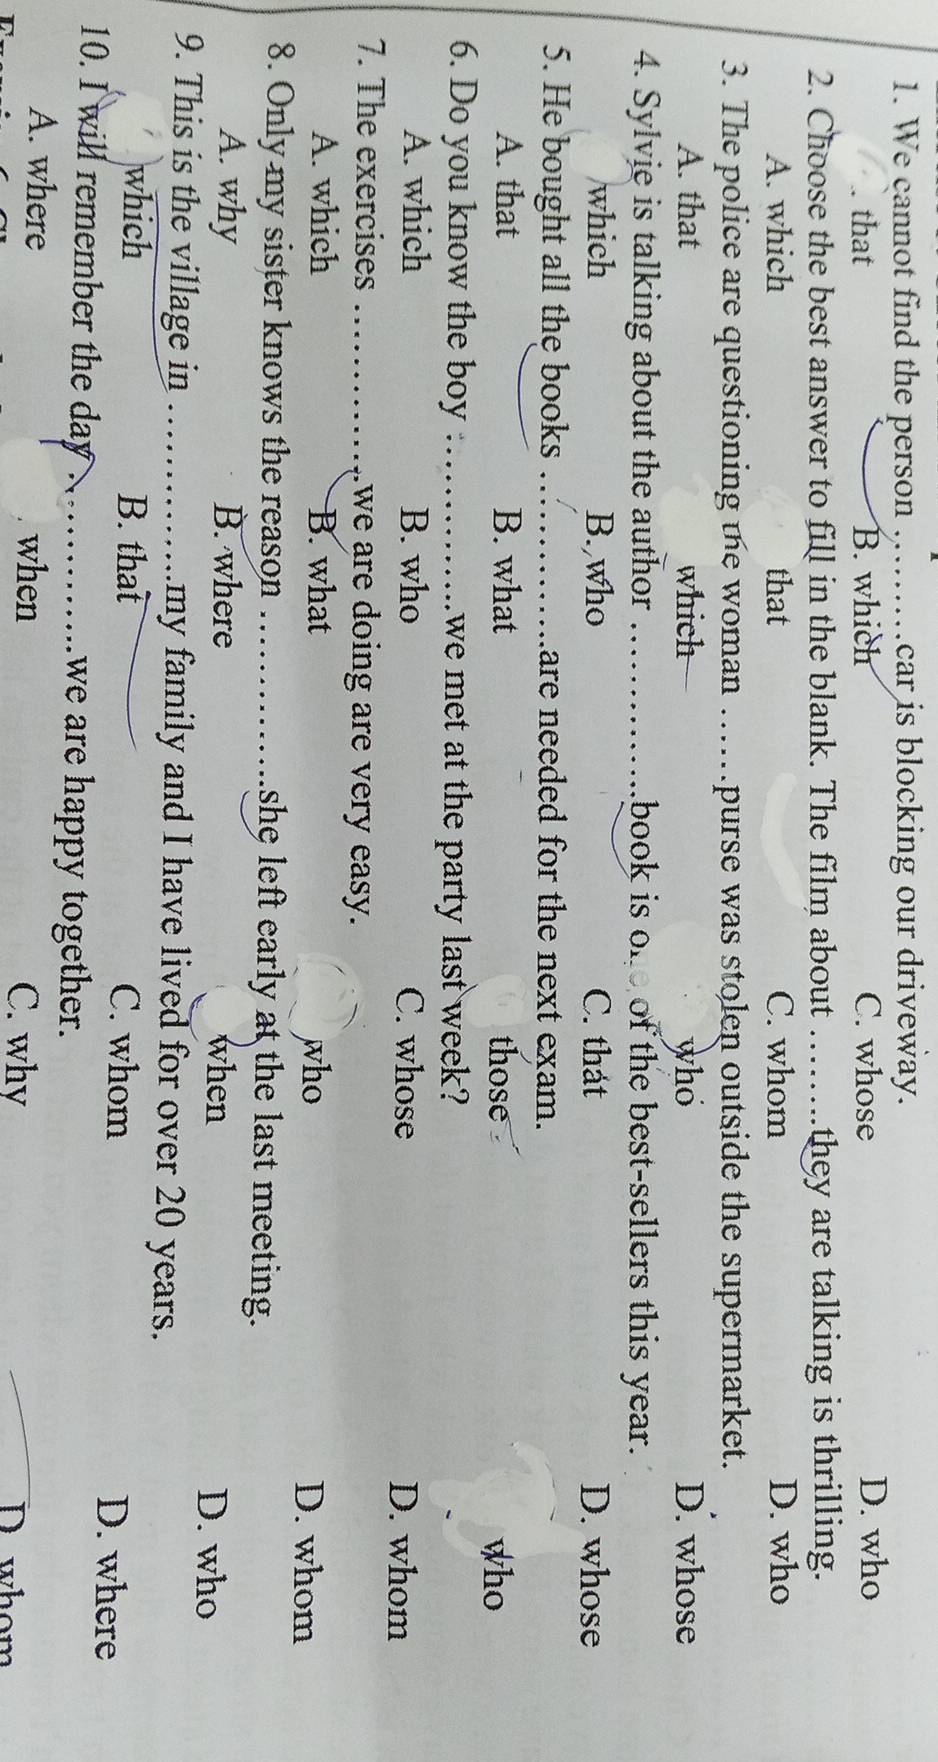 1. We cannot find the person ........car is blocking our driveway.
that B. which C. whose D. who
2. Choose the best answer to fill in the blank. The film about .......they are talking is thrilling.
A. which that C. whom D. who
3. The police are questioning the woman ......purse was stolen outside the supermarket.
A. that which who D. whose
4. Sylvie is talking about the author ..............book is one of the best-sellers this year.
which B. who C. that D. whose
5. He bought all the books ..............are needed for the next exam.
A. that B. what those who
6. Do you know the boy ..............we met at the party last week?
A. which B. who C. whose D. whom
7. The exercises ..............we are doing are very easy.
A. which B. what who D. whom
8. Only my sister knows the reason ..............she left early at the last meeting.
A. why B. where when D. who
9. This is the village in ..............my family and I have lived for over 20 years.
which B. that C. whom D. where
10. I will remember the day ..............we are happy together.
A. where when C. why D. whom